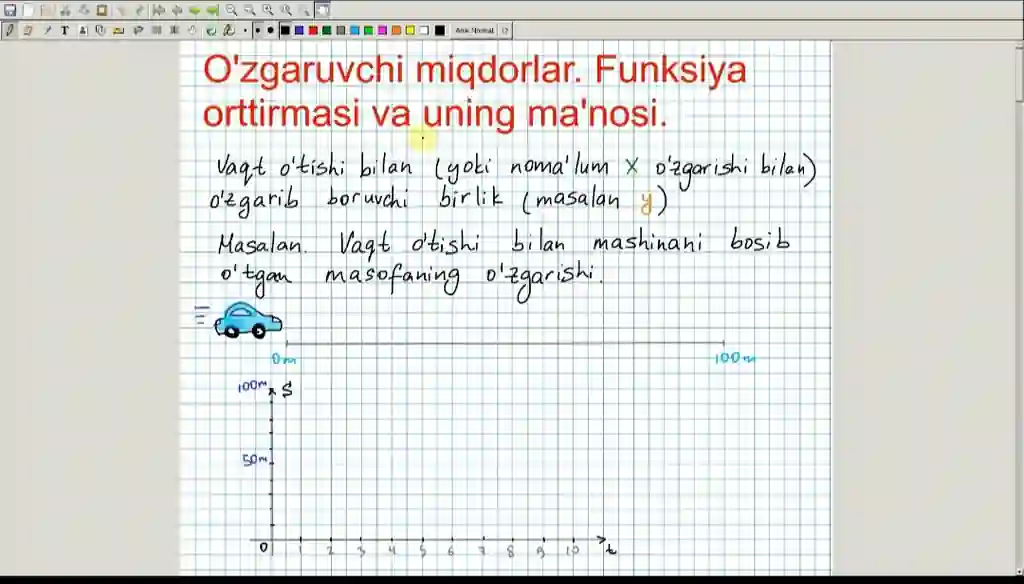 Arial Normal 12
O'zgaruvchi miqdorlar. Funksiya
orttirmasi va uning ma'nosi.
Vaqt o'tishi bilan (yoki noma'lum x o'zgarishi bilan)
o'zgarib boruvchi birlik (masalan y)
Masalan. Vaqt o'tishi bilan mashinani bosib
o'tgan masofaning o'zgarishi.
0m 100m
100m S
50m
0 1 2 3 4 5 6 7 8 9 10 t